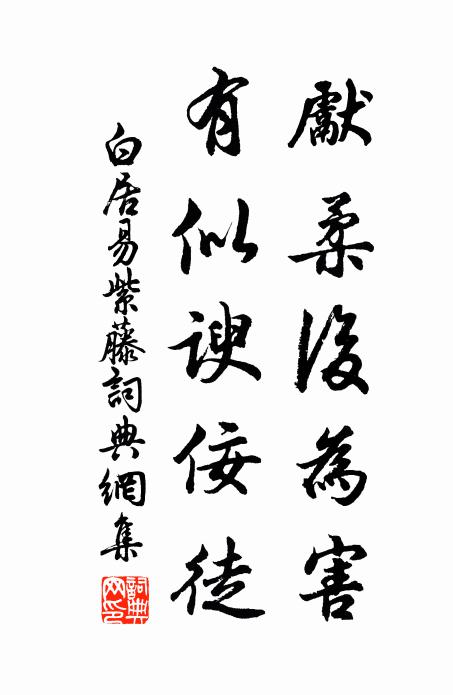 獻柔後為害
有似諛佞徒
白居易紫藤詞典網集
詞典
网印